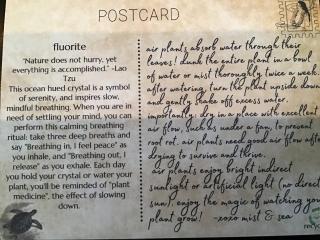 POSTCARD
fluorite
"Nature does not hurry, yet
everything is accomplished." -Lao
Tzu
This ocean hued crystal is a symbol
of serenity, and inspires slow,
mindful breathing. When you are in
need of settling your mind, you can
perform this calming breathing
ritual: take three deep breaths and
say "Breathing in, I feel peace" as
you inhale, and "Breathing out, I
release" as you exhale. Each day
you hold your crystal or water your
plant, you'll be reminded of "plant
medicine", the effect of slowing
down.
air plants absorb water through their
leaves! dunk the entire plant in a bowl
of water or mist thoroughly twice a week.
after watering, turn the plant upside down
and gently shake off excess water.
importantly: dry in a place with excellent
air flow, such as under a fan, to prevent
root rot. air plants need good air flow after
drying to survive and thrive.
air plants enjoy bright indirect
sunlight or artificial light (no direct
sun). enjoy the magic of watching your
plant grow! -xoxo mist & sea